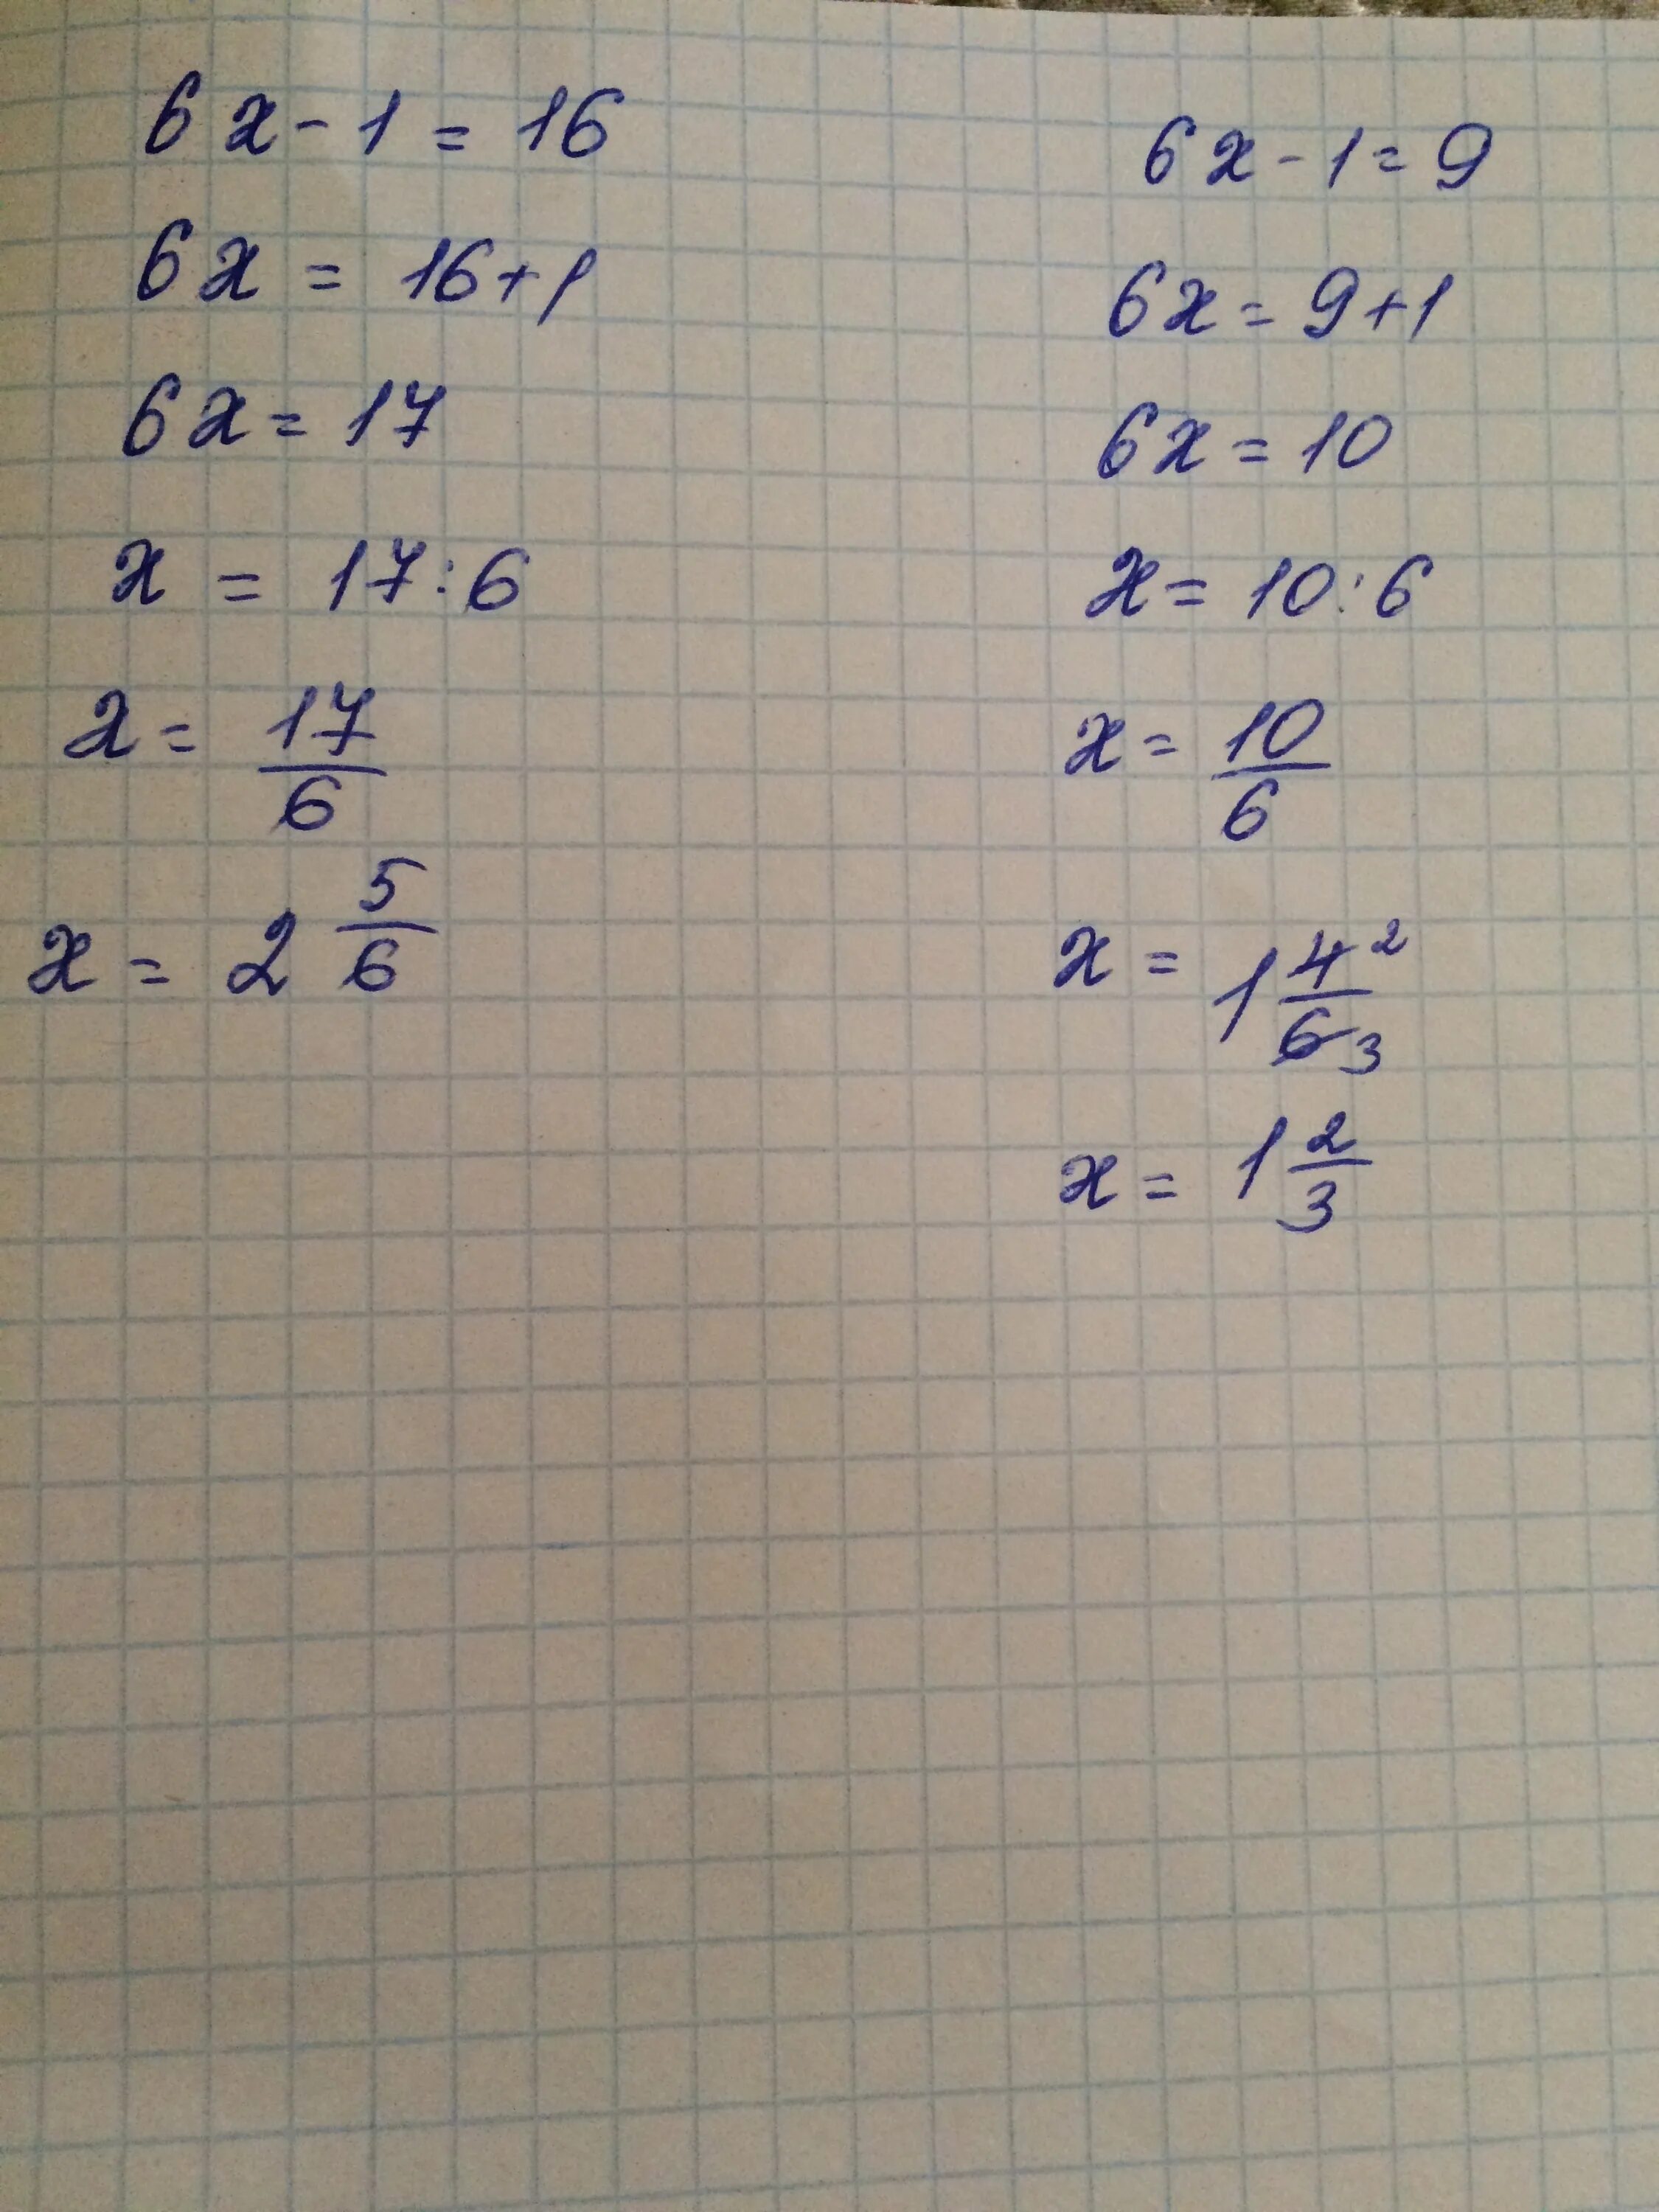 6x - 1 = 16
6x = 16 + 1
6x = 17
x = 17 : 6
x = 17/6
x = 2 5/6
6x - 1 = 9
6x = 9 + 1
6x = 10
x = 10 : 6
x = 10/6
x = 1 4²/6₃
x = 1 2/3